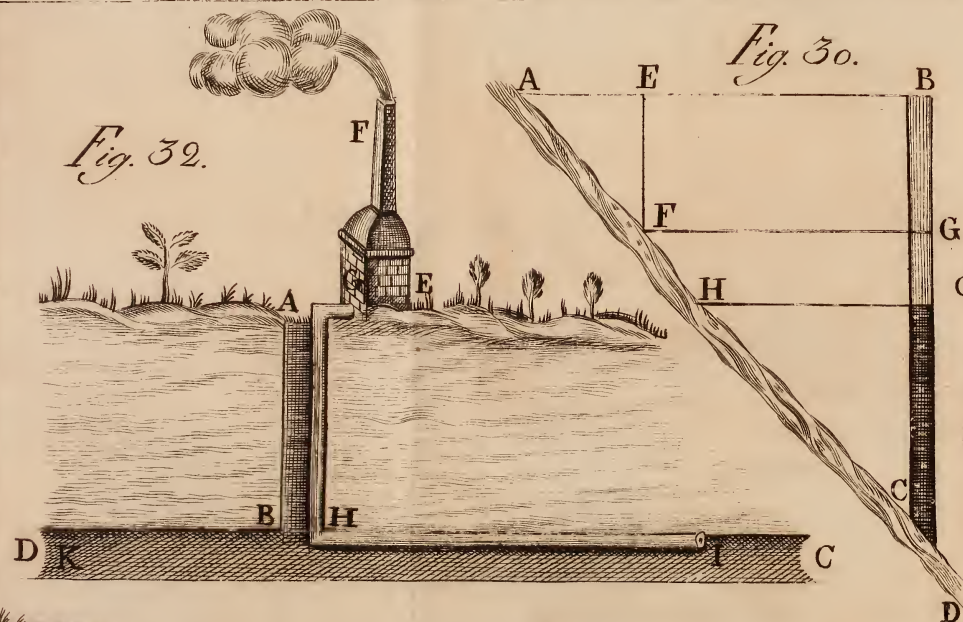 Fig. 32.
F
G
E
A
B
H
D
K
I
C
Fig. 30.
A
E
B
F
G
H
C
D